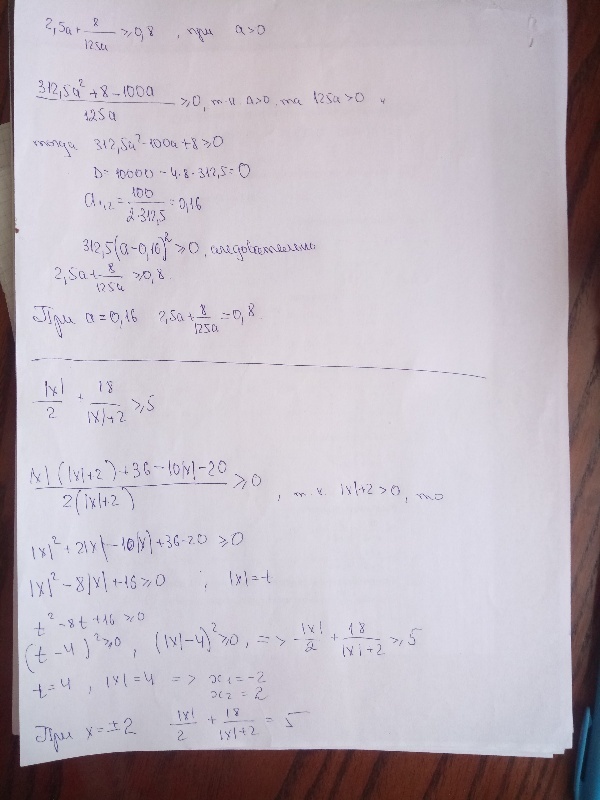 2,5a + 8/125a ≥ 0,8 , при a>0
312,5a² + 8 - 100a / 125a ≥ 0, т.к. a>0, то 125a>0
тогда 312,5a² - 100a + 8 ≥ 0
D = 10000 - 4·8·312,5 = 0
a₁,₂ = 100 / 2·312,5 = 0,16
312,5(a - 0,16)² ≥ 0, следовательно
2,5a + 8/125a ≥ 0,8
При a = 0,16 2,5a + 8/125a = 0,8
|x|/2 + 18/|x|+2 ≥ 5
|x|(|x|+2) + 36 - 10|x| - 20 / 2(|x|+2) ≥ 0 , т.к. |x|+2>0, то
|x|² + 2|x| - 10|x| + 36 - 20 ≥ 0
|x|² - 8|x| + 16 ≥ 0 ; |x| = t
t² - 8t + 16 ≥ 0
(t - 4)² ≥ 0 , (|x| - 4)² ≥ 0, => |x|/2 + 18/|x|+2 ≥ 5
t = 4 , |x| = 4 => x₁ = -2
x₂ = 2
При x = ±2 |x|/2 + 18/|x|+2 = 5